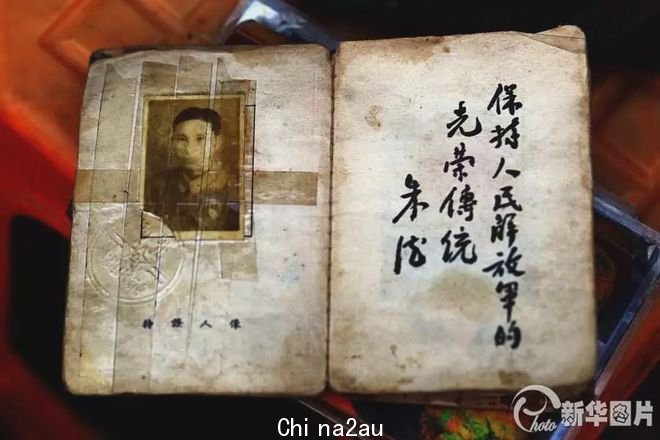 保持人民解放軍的
光荣傳統
朱德
像人證持
Photo 新华图片
Chi na2au